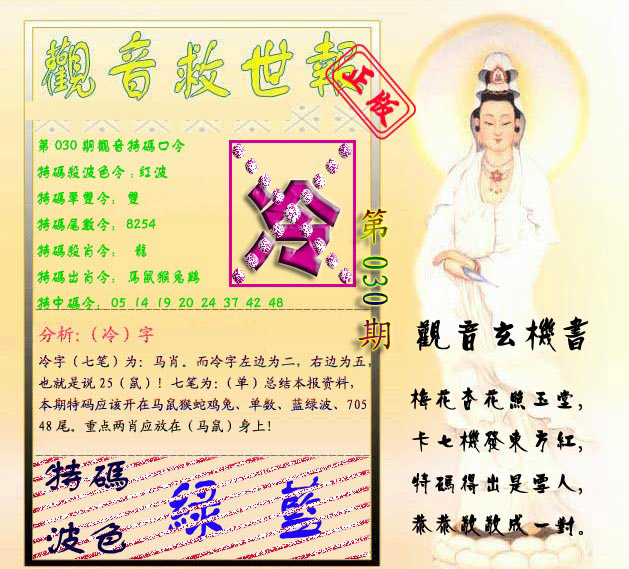 觀音救世報
正版
第030期觀音特碼口令
特碼殺波色令:紅波
特碼單雙令: 雙
特碼尾數令: 8254
特碼殺肖令: 龍
特碼出肖令: 馬鼠猴兔鷄
特中碼令: 05 14 19 20 24 37 42 48
冷
第030期
分析:(冷)字
冷字(七笔)为:马肖。而冷字左边为二，右边为五，
也就是说25(鼠)！七笔为:(单)总结本报资料，
本期特码应该开在马鼠猴蛇鸡兔、单数、蓝绿波、705
48尾。重点两肖应放在(马鼠)身上！
特碼
波色
綠 藍
觀音玄機書
梅花杏花照玉堂，
卡七機發東方紅，
特碼得出是雪人，
恭恭敬敬成一對。